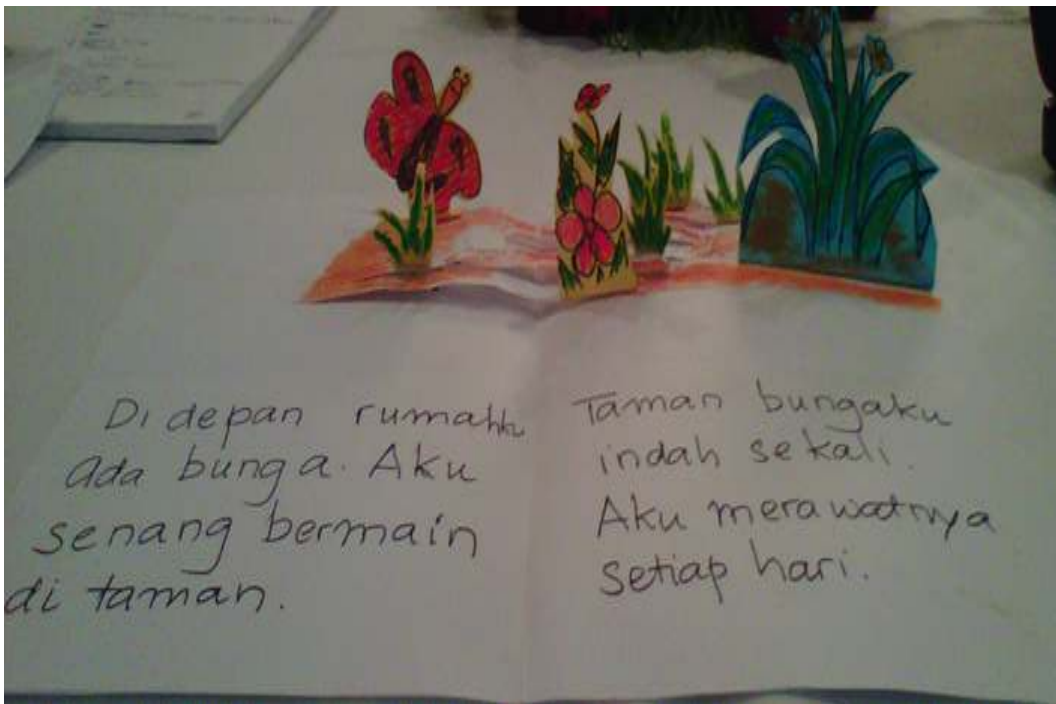 Di depan rumahku
ada bunga. Aku
senang bermain
di taman.
Taman bungaku
indah sekali.
Aku merawatnya
setiap hari.